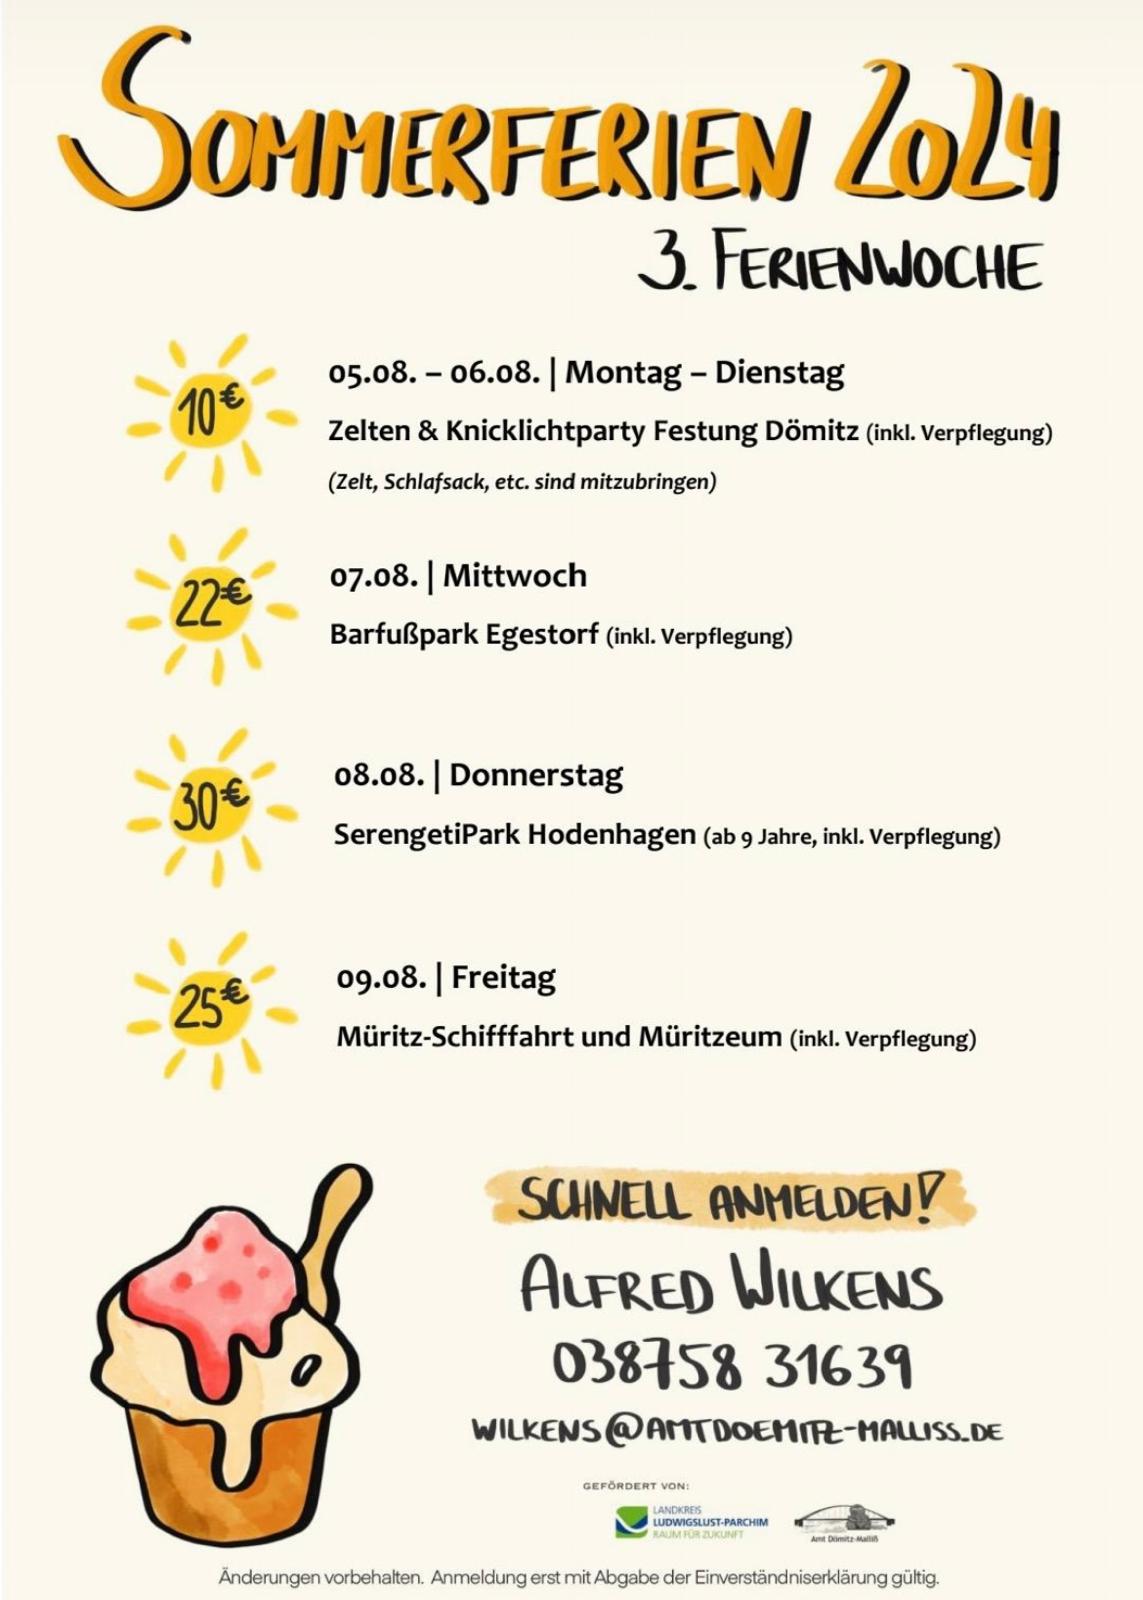 SOMMERFERIEN 2024
3. FERIENWOCHE
10€
05.08. – 06.08. | Montag – Dienstag
Zelten & Knicklichtparty Festung Dömitz (inkl. Verpflegung)
(Zelt, Schlafsack, etc. sind mitzubringen)
22€
07.08. | Mittwoch
Barfußpark Egestorf (inkl. Verpflegung)
30€
08.08. | Donnerstag
SerengetiPark Hodenhagen (ab 9 Jahre, inkl. Verpflegung)
25€
09.08. | Freitag
Müritz-Schifffahrt und Müritzeum (inkl. Verpflegung)
SCHNELL ANMELDEN!
ALFRED WILKENS
038758 31639
WILKENS@AMTDOEMITZ-MALLISS.DE
GEFÖRDERT VON:
LANDKREIS
LUDWIGSLUST-PARCHIM
RAUM FÜR ZUKUNFT
Amt Dömitz-Malliß
Änderungen vorbehalten. Anmeldung erst mit Abgabe der Einverständniserklärung gültig.